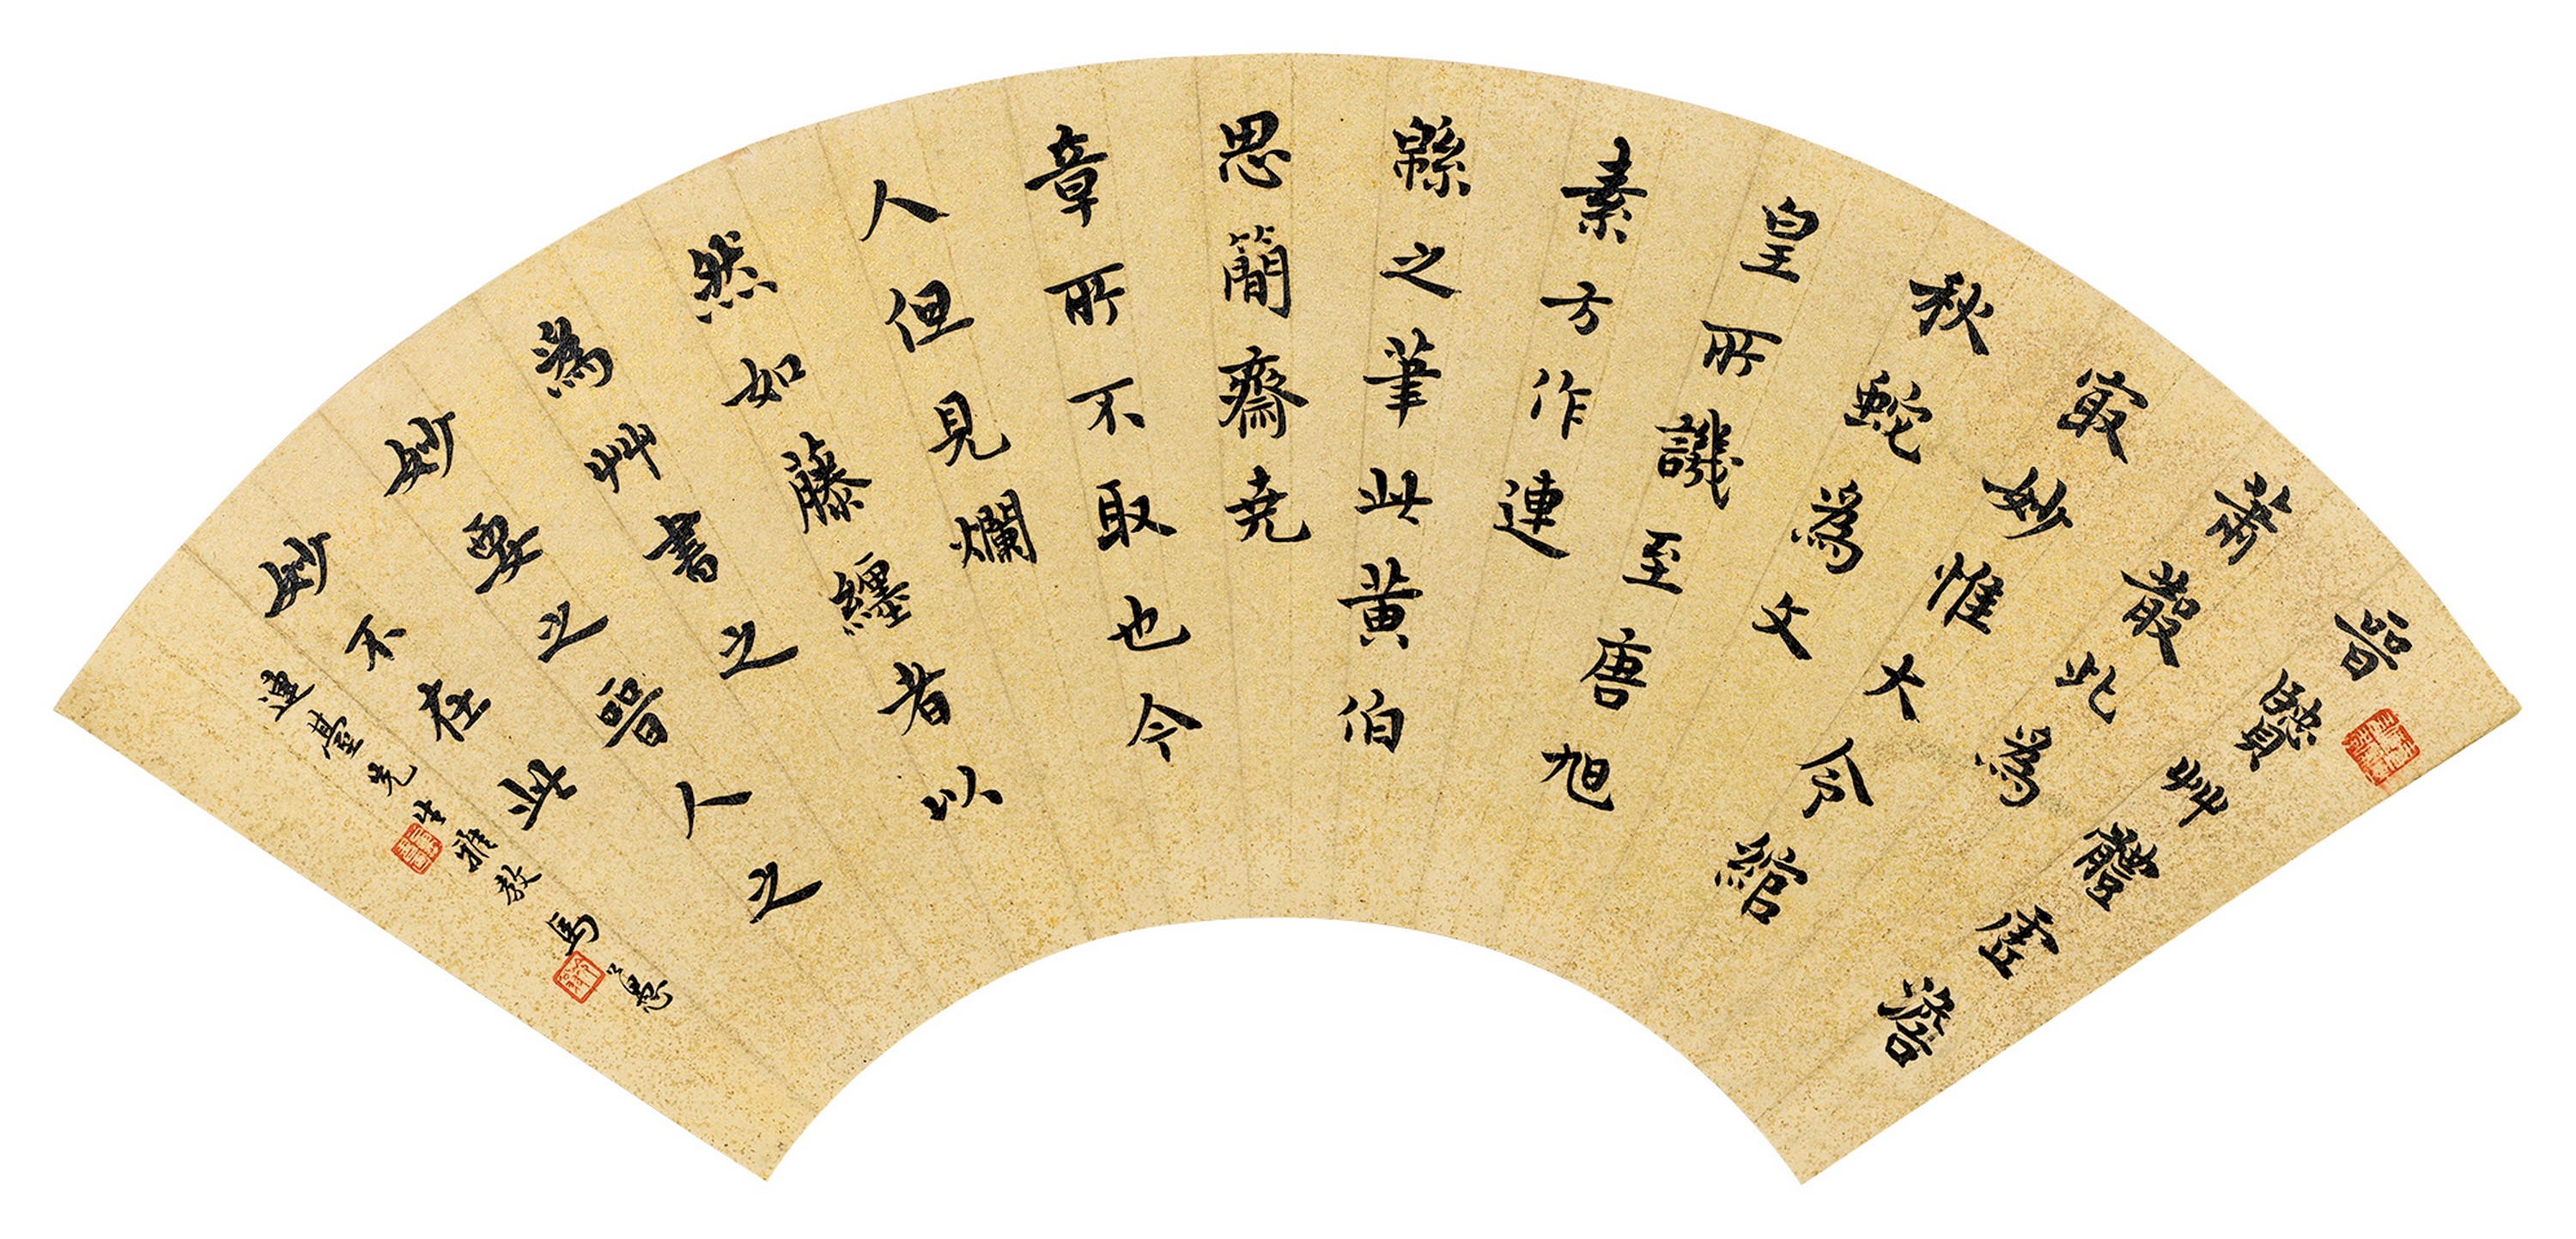 晉賢艸體虛澹
蕭散此為
㝡妙惟大令綰
秋蛇為文
皇所譏至唐旭
素方作連
緜之筆此黃伯
思簡齋堯
章所不取也今
人但見爛
然如藤纏者以
為艸書之
妙要之晉人之
妙不在此
臺先生雅教 馬公愚